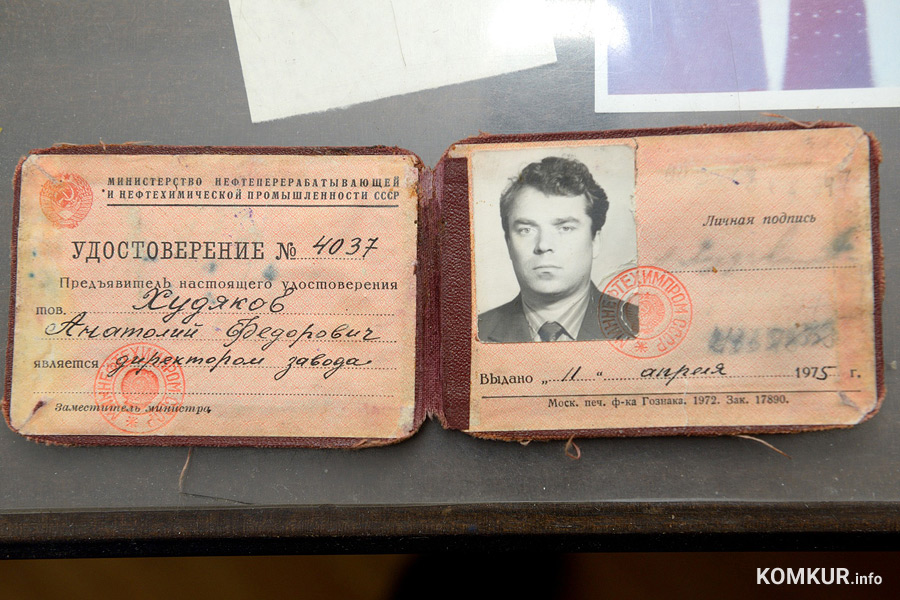 МИНИСТЕРСТВО НЕФТЕПЕРЕРАБАТЫВАЮЩЕЙ
И НЕФТЕХИМИЧЕСКОЙ ПРОМЫШЛЕННОСТИ СССР
УДОСТОВЕРЕНИЕ № 4037
Предъявитель настоящего удостоверения
тов. Худяков
Анатолий Федорович
является директором завода
Заместитель министра
МИННЕФТЕХИМПРОМ СССР
Личная подпись
МИННЕФТЕХИМПРОМ СССР
Выдано „11“ апреля 1975 г.
Моск. печ. ф-ка Гознака. 1972. Зак. 17890.
KOMKUR.info